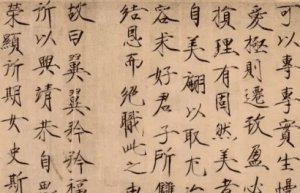 可以專專實生慢
愛極則遷致盈必
損理有固然美者
自美翩以取尤冶
容求好君子所讎
結恩而絕職此之由
故曰翼翼矜矜福
所以興靖恭自思
榮顯所期女史斯